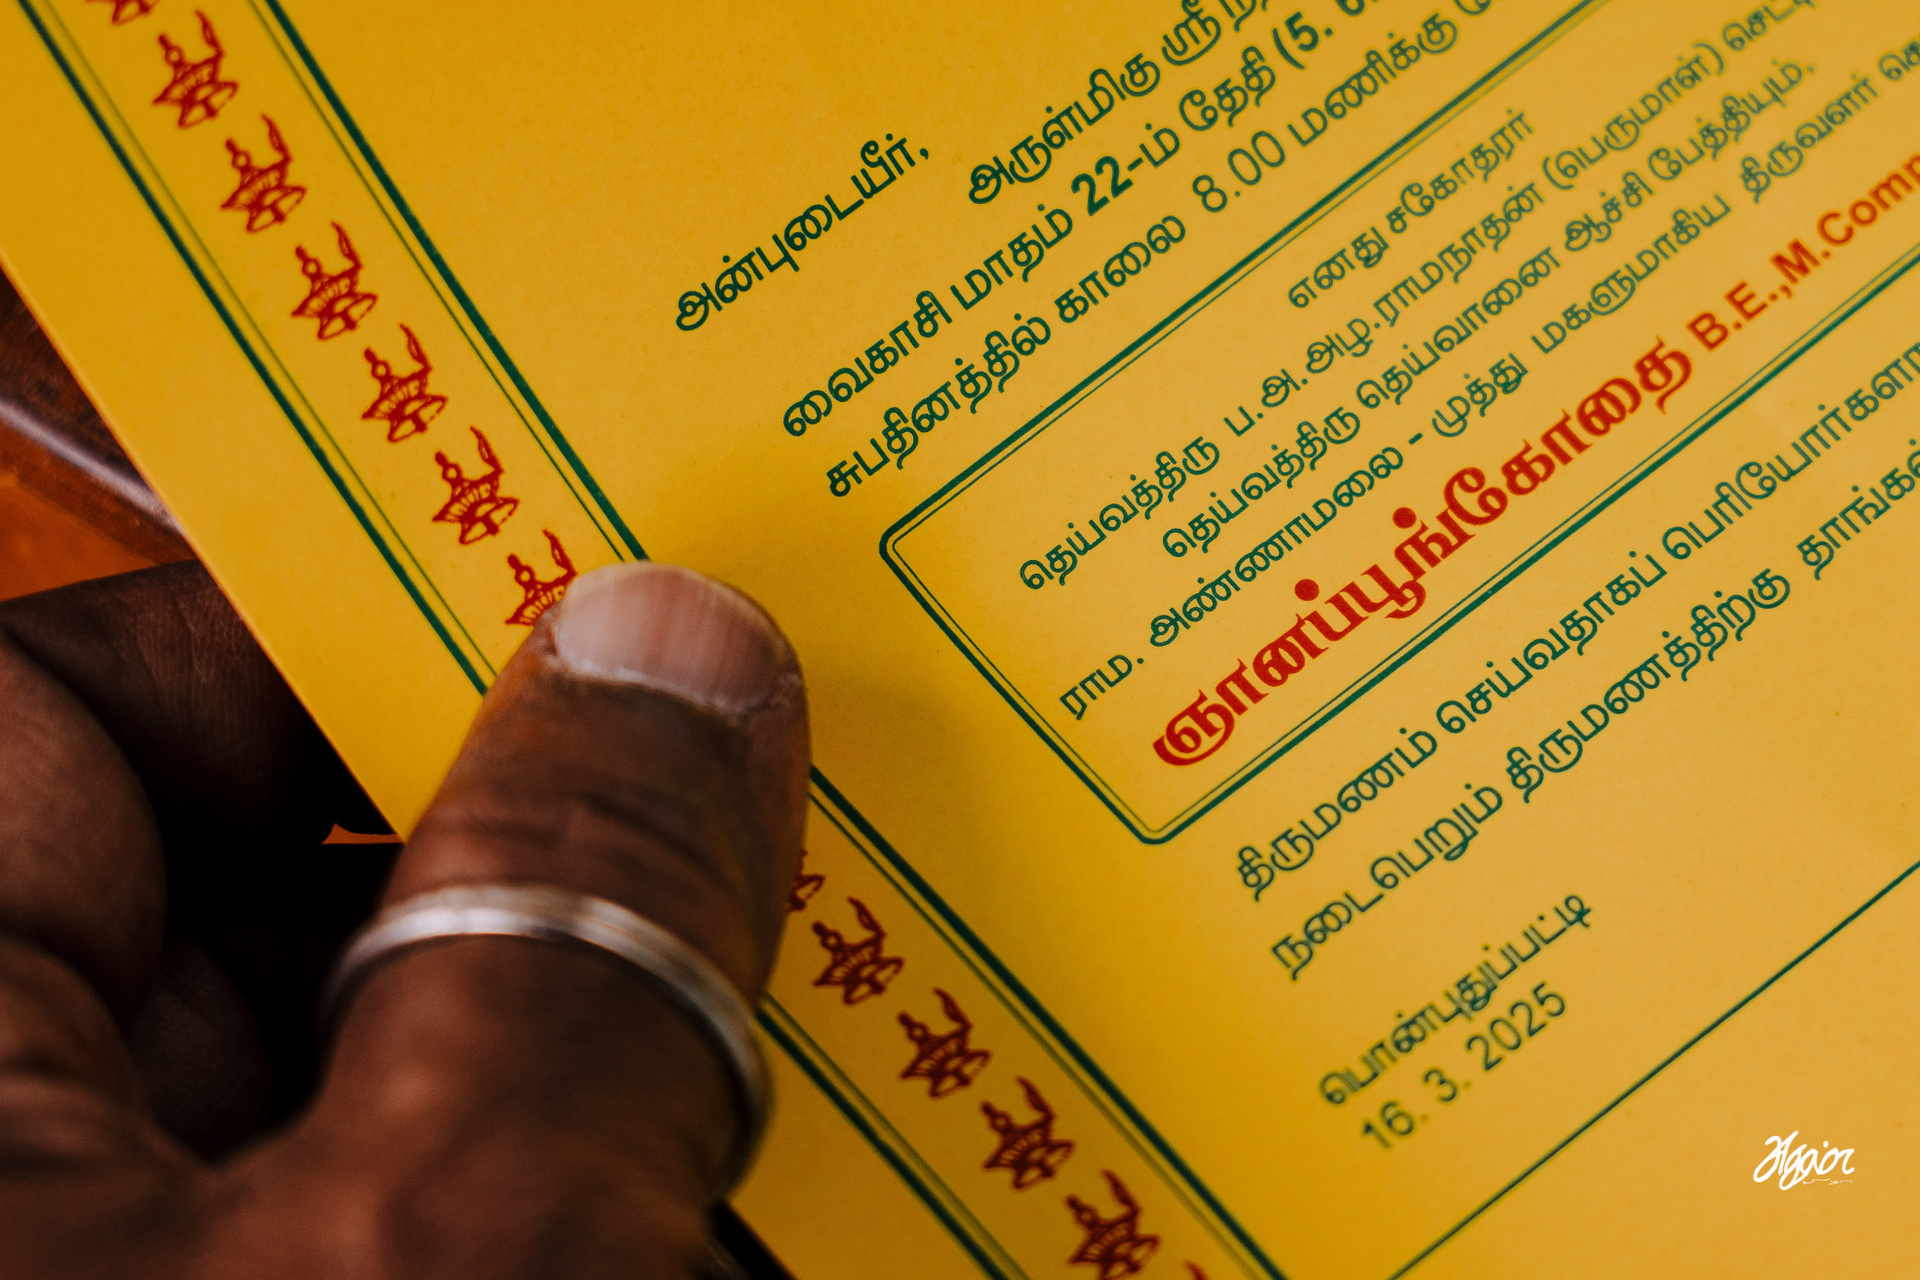 அன்புடையீர்,
அருள்மிகு ஸ்ரீ
வைகாசி மாதம் 22-ம் தேதி (5. 6.
சுபதினத்தில் காலை 8.00 மணிக்கு
எனது சகோதரர்
தெய்வத்திரு ப.அ.அழ.ராமநாதன் (பெருமாள்)
தெய்வத்திரு தெய்வானை ஆச்சி பேத்தியும்,
ராம. அண்ணாமலை - முத்து மகளுமாகிய திருவளர்
ஞானப்பூங்கோதை B.E.,M.Comp
திருமணம் செய்வதாகப் பெரியோர்களா
நடைபெறும் திருமணத்திற்கு தாங்கள்
பொன்புதுப்பட்டி
16. 3. 2025